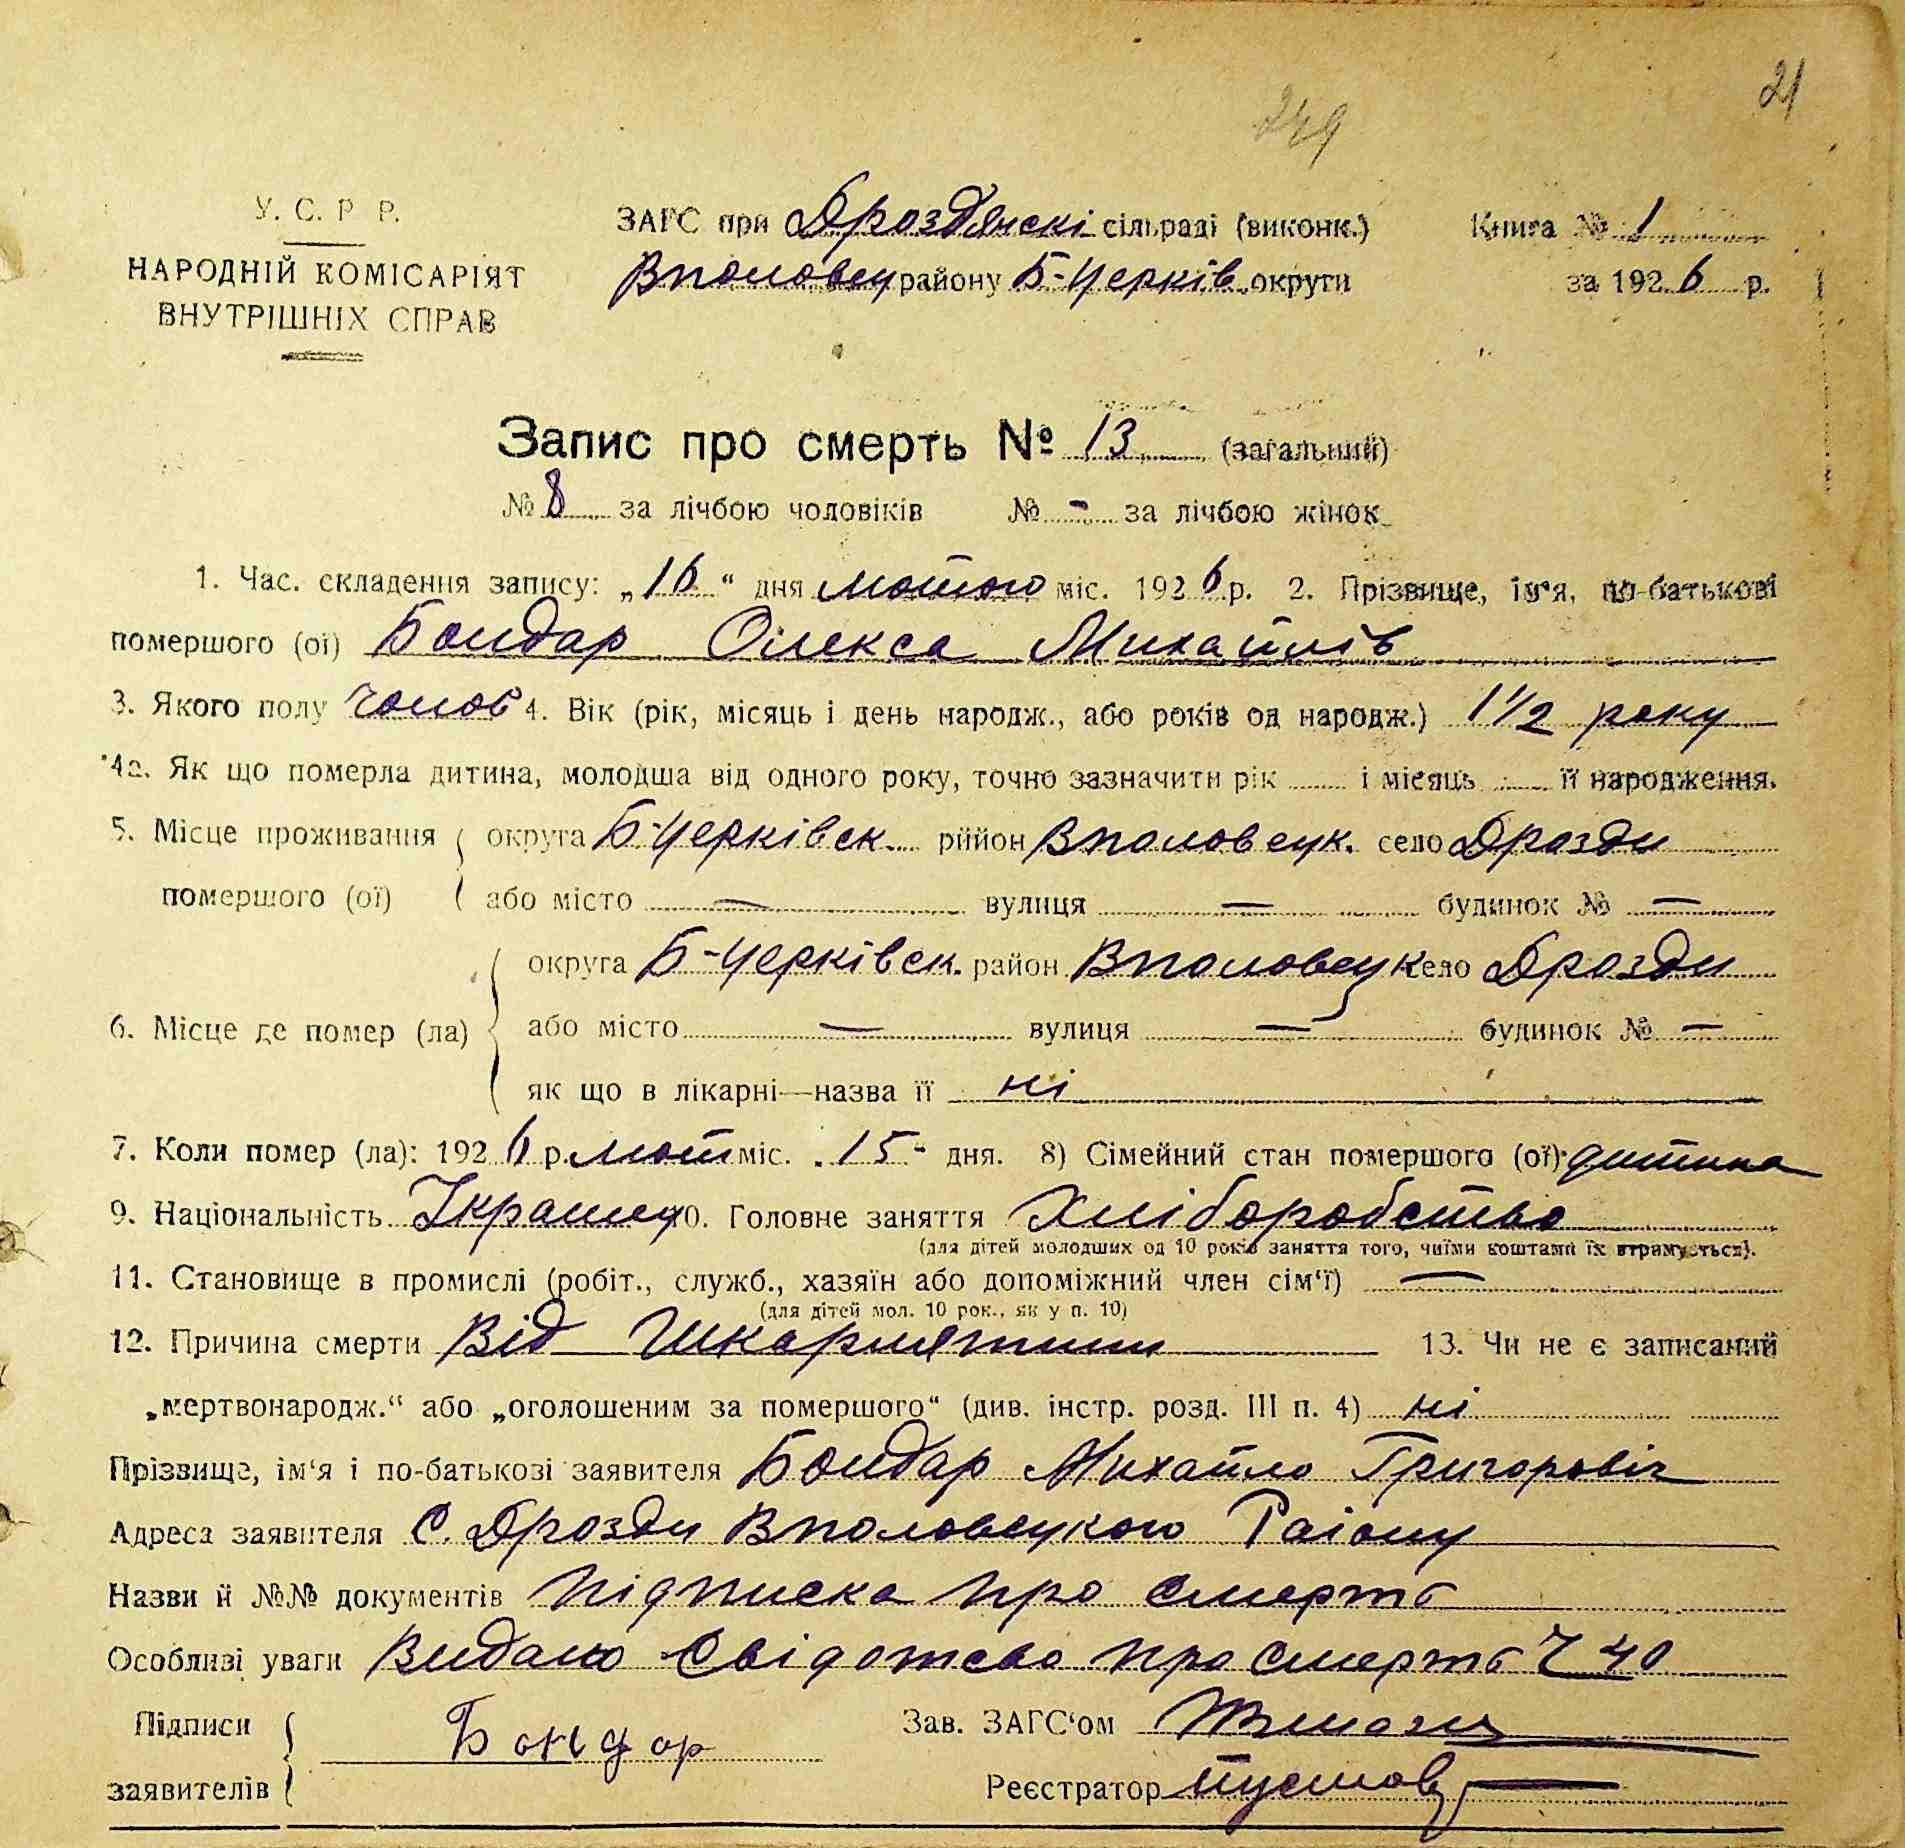 21
249
У. С. Р Р.
НАРОДНІЙ КОМІСАРІЯТ
ВНУТРІШНІХ СПРАВ
ЗАГС при Дроздянскі сільраді (виконк.)
Вполовец району Б-Церків. округи
Книга № 1
за 1926 р.
Запис про смерть № 13 (загальний)
№ 8 за лічбою чоловіків № - за лічбою жінок
1. Час. складення запису: „16“ дня лютого міс. 1926 р. 2. Прізвище, ім'я, по-батькові
помершого (ої) Бондар Олекса Михайлів
3. Якого полу чолов 4. Вік (рік, місяць і день народж., або років од народж.) 1 1/2 року
4а. Як що померла дитина, молодша від одного року, точно зазначити рік і місяць її народження.
5. Місце проживання округа Б-Церківск. рийон Вполовецк. село Дрозди
помершого (ої) або місто — вулиця — будинок № —
округа Б-Церківск. район Вполовецк село Дрозди
6. Місце де помер (ла) або місто — вулиця — будинок № —
як що в лікарні—назва її ні
7. Коли помер (ла): 1926 р. лют міс. „15“ дня. 8) Сімейний стан помершого (ої): дитина
9. Національність Украінец 10. Головне заняття Хліборобство
(для дітей молодших од 10 років заняття того, чиїми коштами їх втримується).
11. Становище в промислі (робіт., служб., хазяїн або допоміжний член сім'ї) —
(для дітей мол. 10 рок., як у п. 10)
12. Причина смерти Від Шкарлятини 13. Чи не є записаний
„мертвонародж.“ або „оголошеним за помершого“ (див. інстр. розд. III п. 4) ні
Прізвище, ім'я і по-батькові заявителя Бондар Михайло Григоровіч
Адреса заявителя С. Дрозди Вполовецкого Раіону
Назви й №№ документів підписка про смерть
Особливі уваги Видано Свідотсво про смерть Ч 40
Підписи
заявителів
Бондор
Зав. ЗАГС'ом
Реєстратор